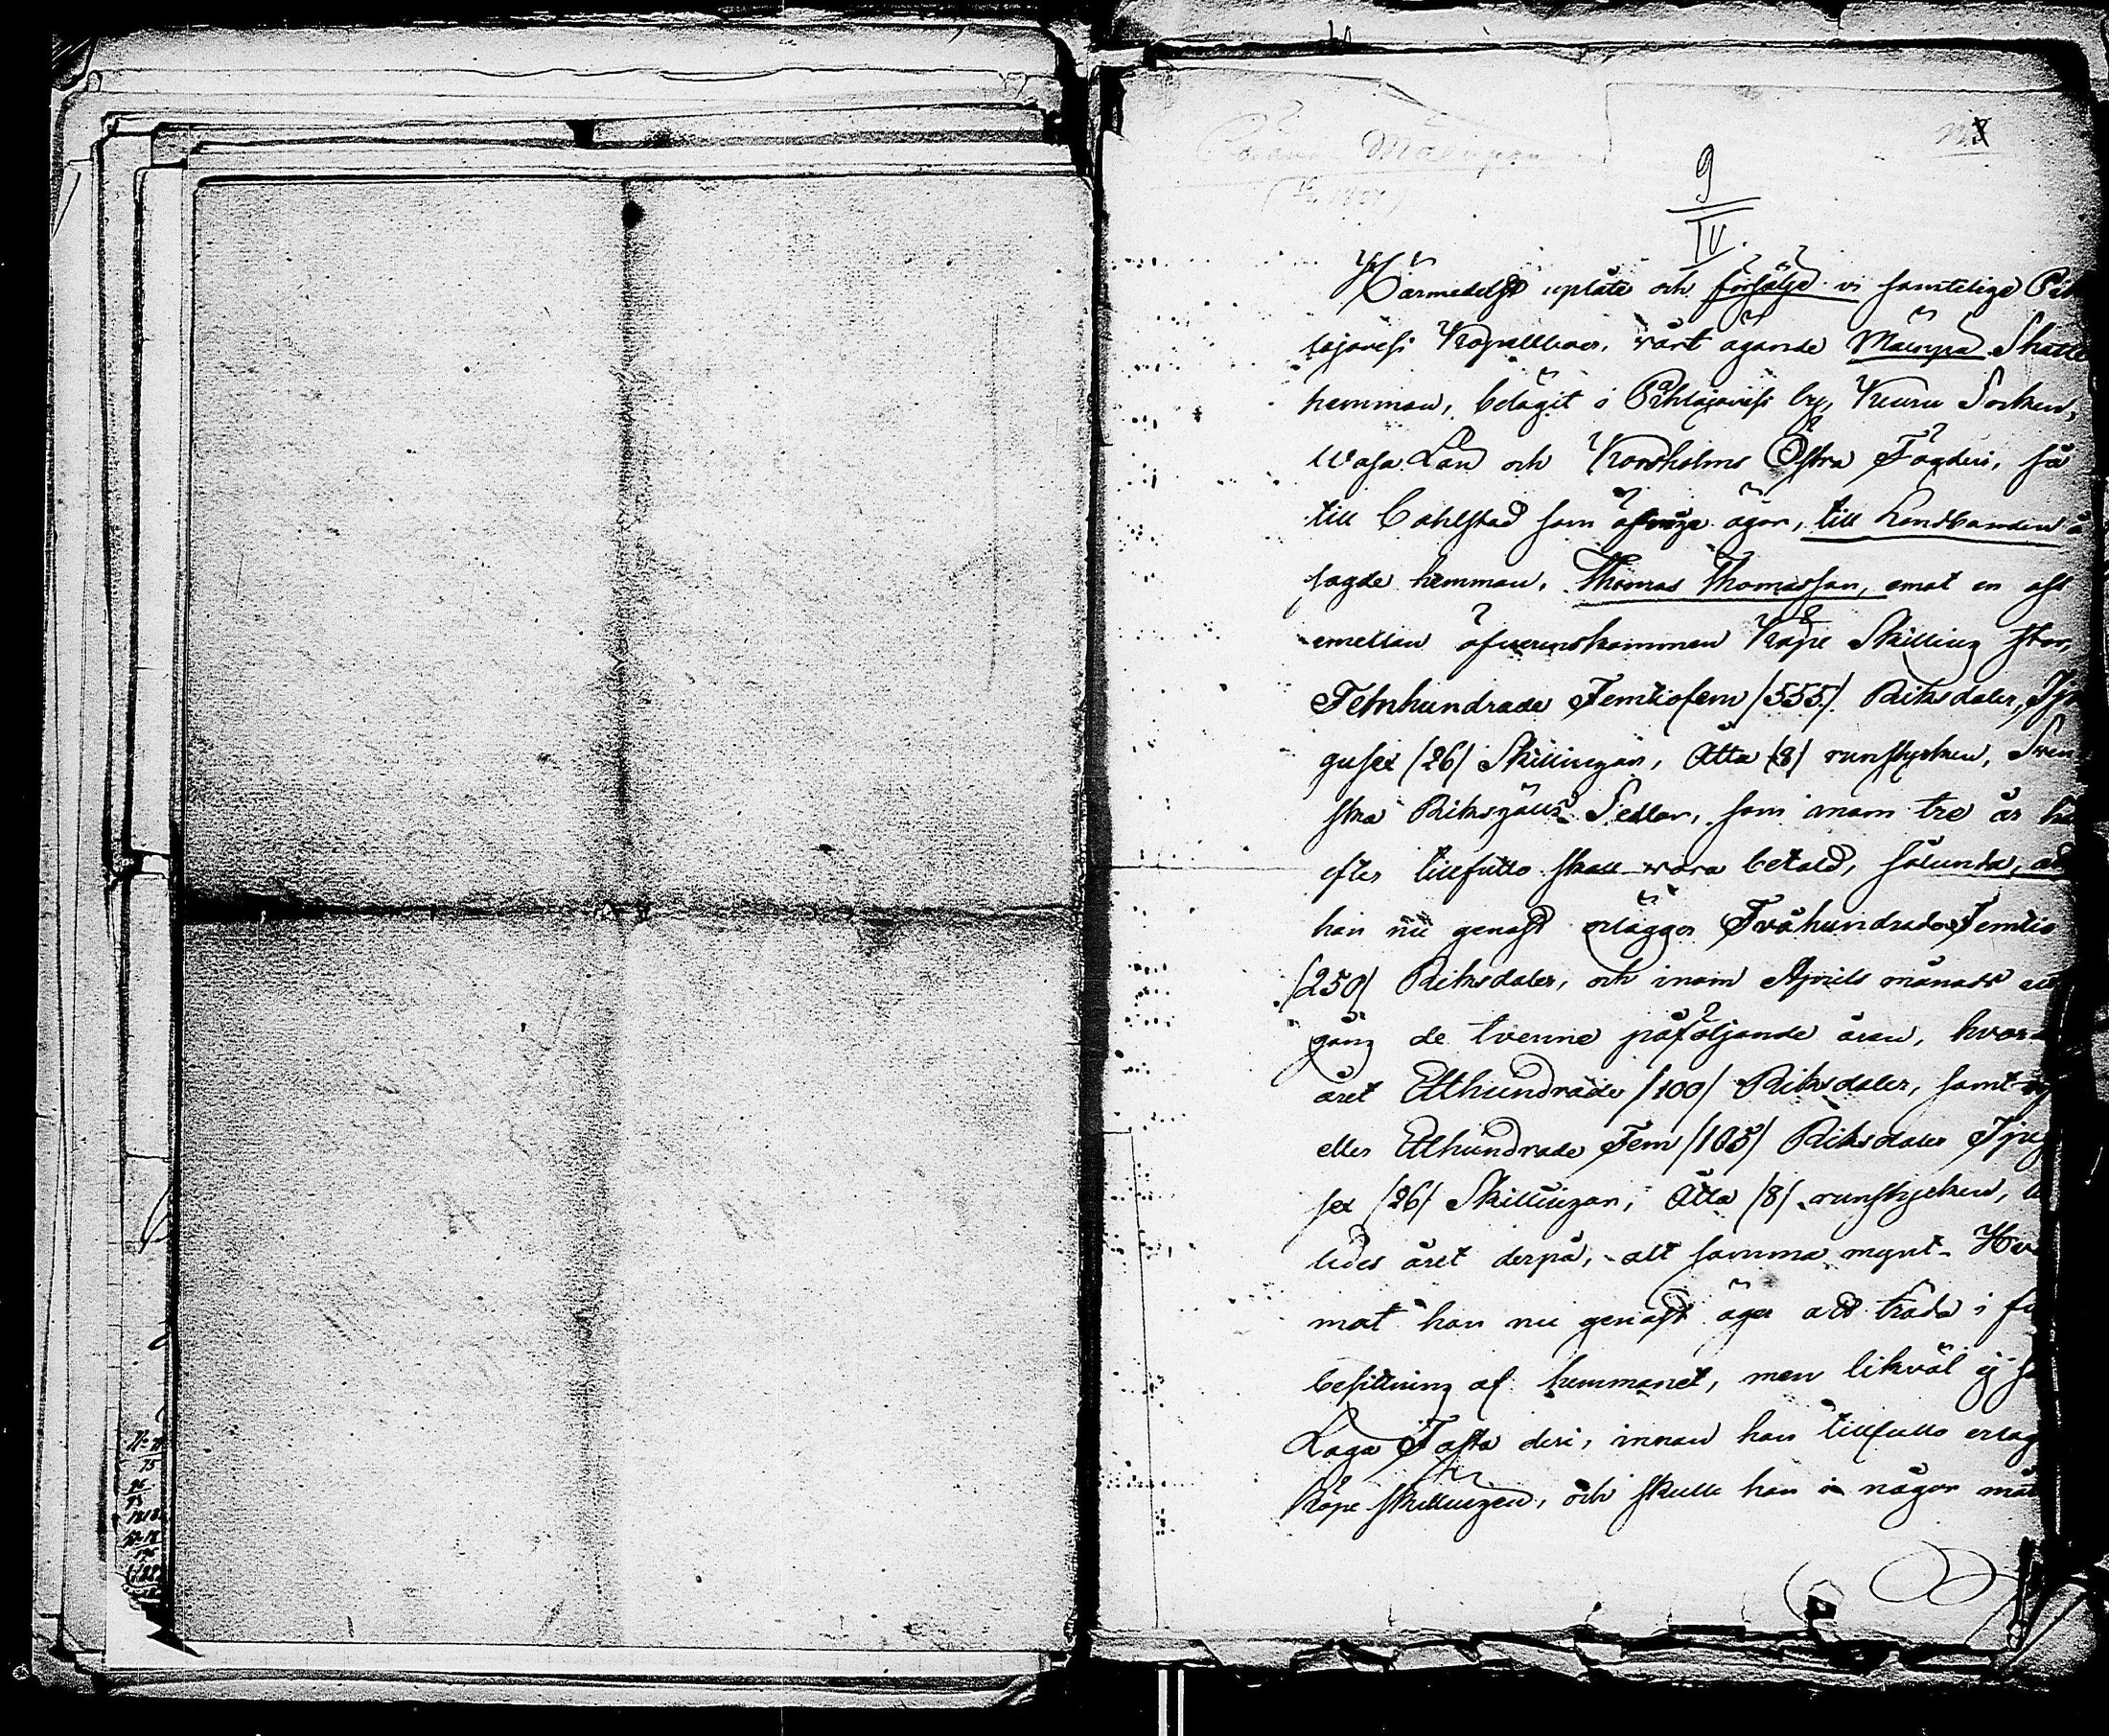 9
IV.
Härmedelst uplåte och försälje vi samtelige Pih
lajavesi Kapellboer, vårt ägande Mäenpää Skatte
hemman, belägit i Pihlajavesi by, Keuru Socken,
Wasa Län och Korsholms Östra Fögderi, så
till bohlstad som öfrige ägor, till Landbonden å
sagde hemman, Thomas Thomasson, emot en oss
emellan öfverenskommen Köpe Skilling stor,
Femhundrade Femtiofem /555/ Riksdaler, Tju
gusex /26/ Skillingar, Åtta /8/ runstycken, Sven
ska Riksgälds Sedlar, som inom tre år här
efter tillfullo skall vara betald, sålunda, att
han nu genast erlägger Tvåhundrade Femtio
/250/ Riksdaler, och inom Aprils månads ut
gång de tvenne påföljande åren, hvar
året Etthundrade /100/ Riksdaler, samt
eller Etthundrade Fem /105/ Riksdaler Tjug
sex /26/ Skillingar, Åtta /8/ runstycken,
ledes året derpå, alt samma mynt. Hvar
mot han nu genast äger att träda i full
besittning af hemmanet, men likväl ej få
Laga Fasta deri, innan han tillfullo erlagt
Köpe skillingen, och skulle han i någor mån